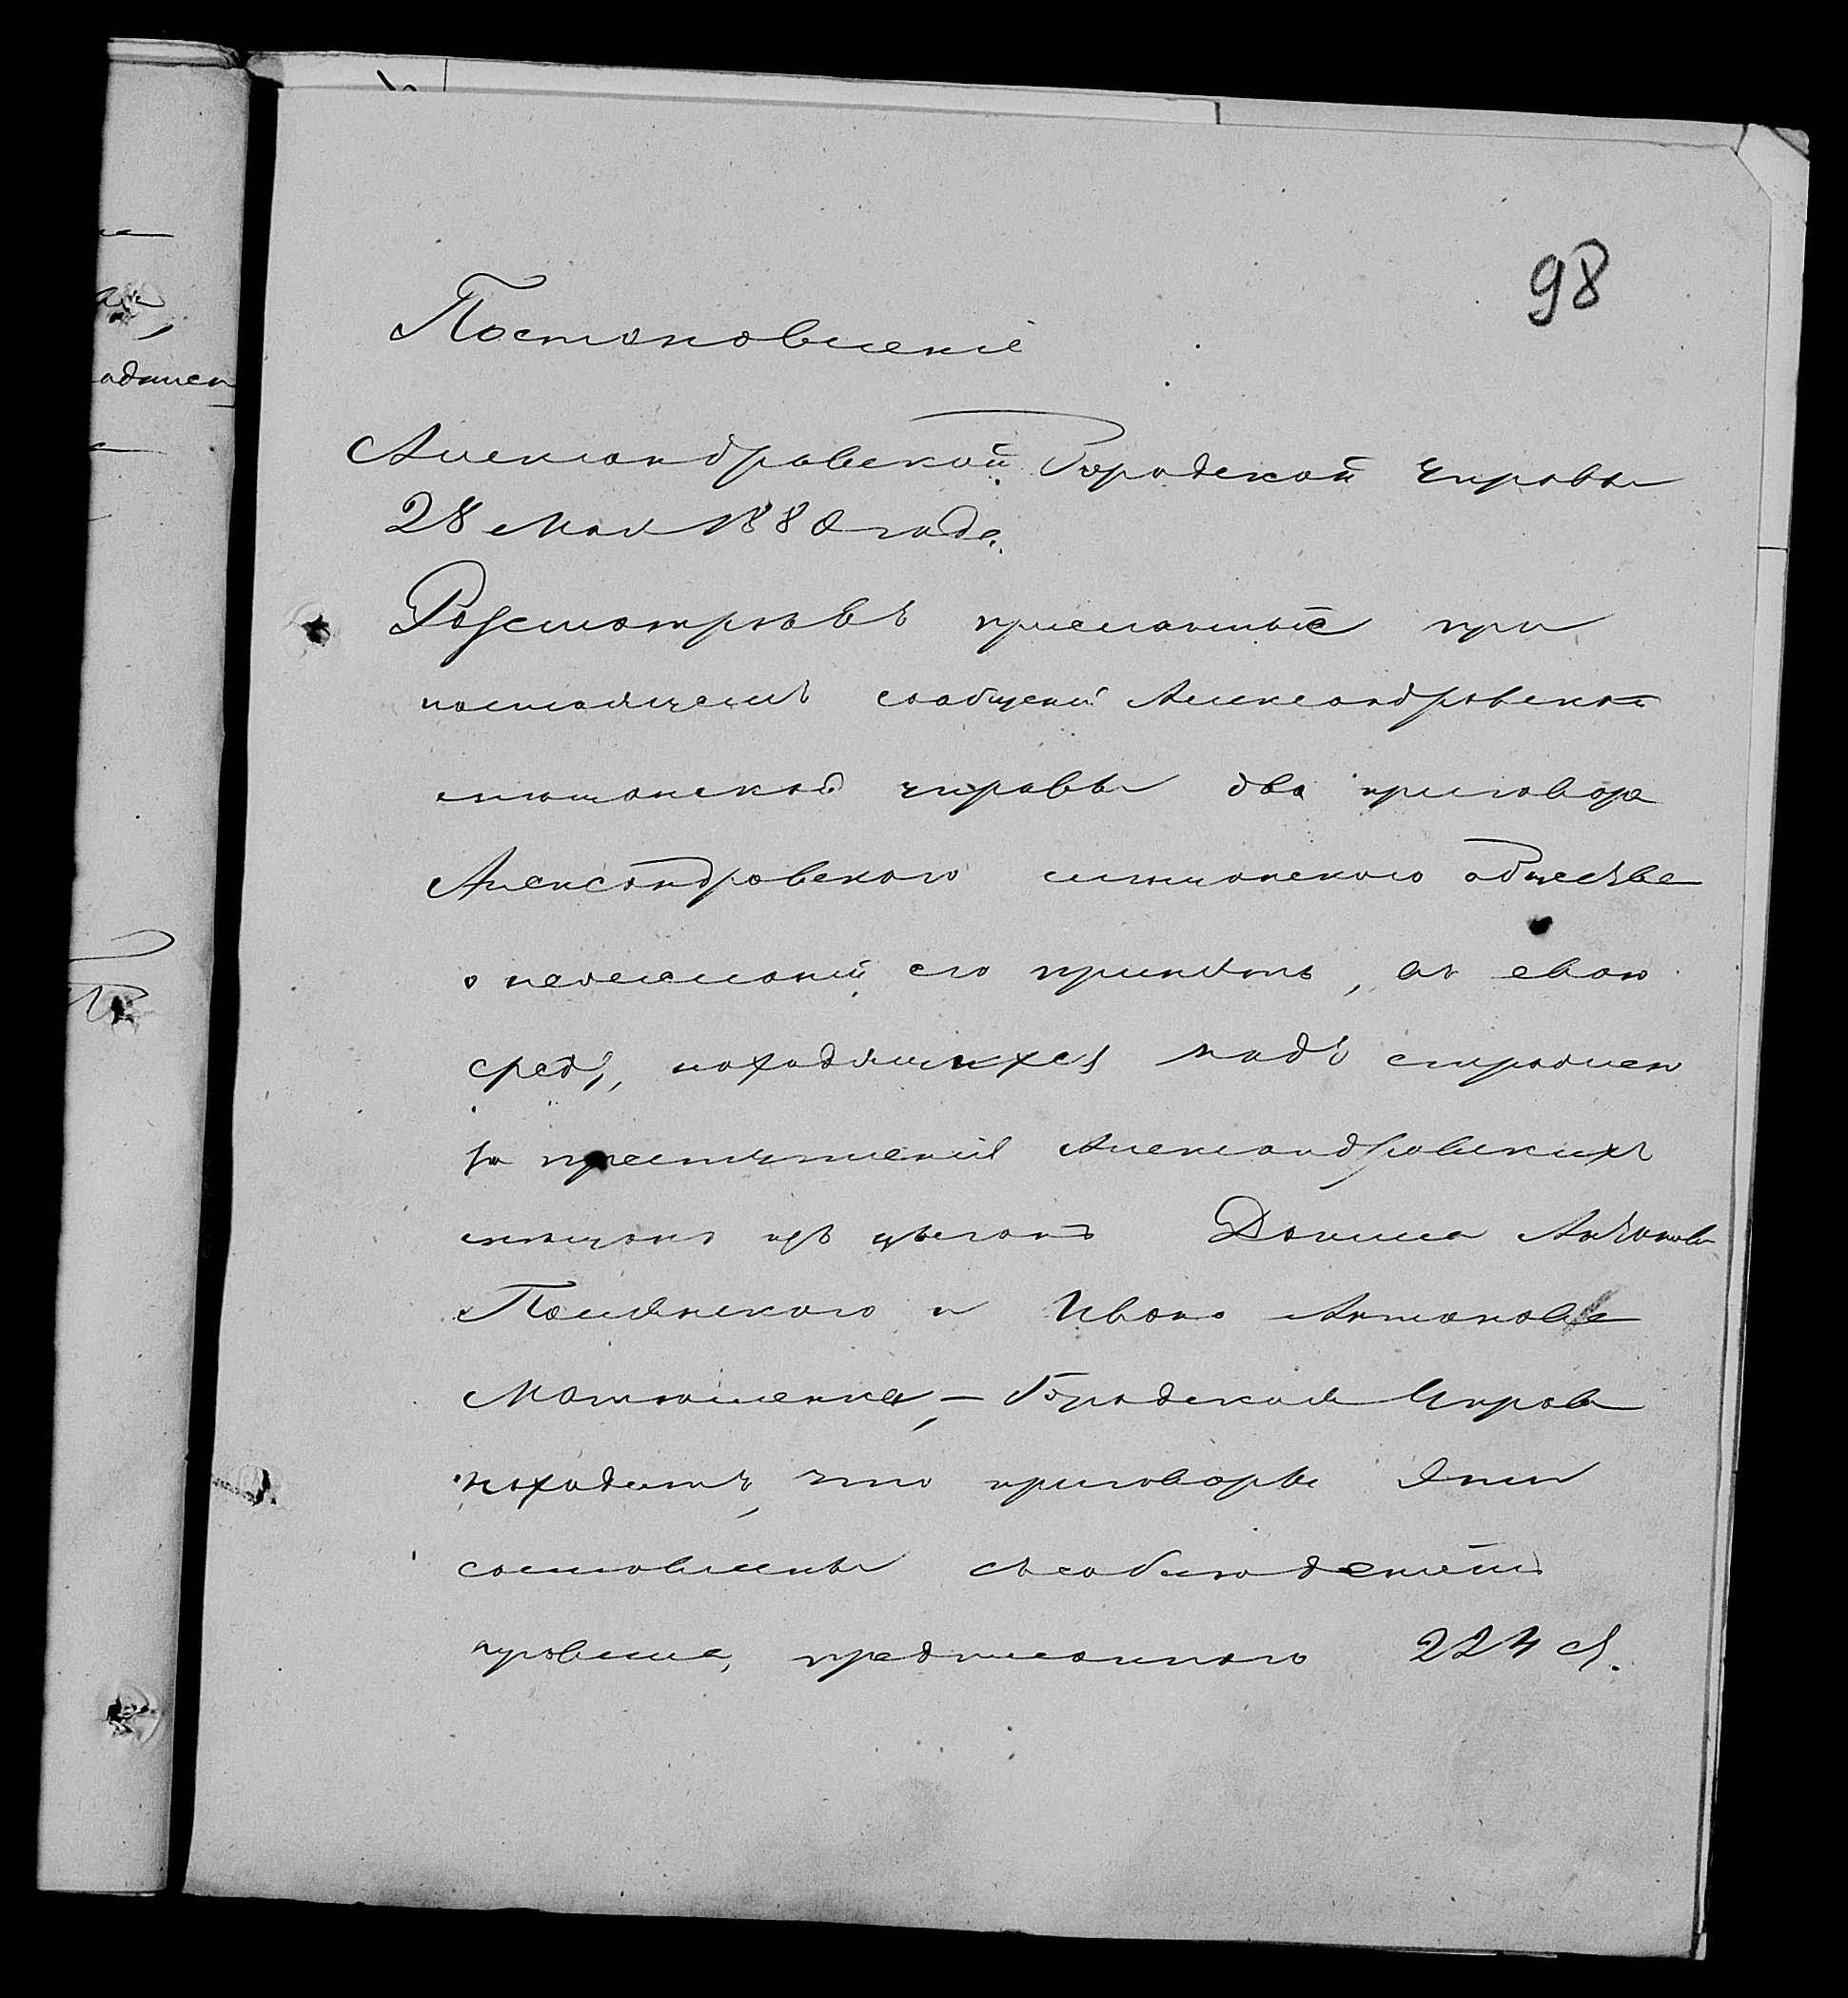 98
Постановленіе
Александровской Городской управы
28 Мая 1880 года.
Разсмотрѣвъ присланные при
настоящемъ сообщеніи Александровской
мѣщанской управы два приговора
Александровскаго мѣщанскаго общества
о нежеланіи его принять, въ свою
среду, находящихся подъ стражею
за преступленія Александровскихъ
мѣщанъ изъ цыганъ Данила Антонова
Полянского и Ивана Антонова
Матюшенка, – Городская Управа
находитъ, что приговоры эти
составлены съ соблюденіемъ
правила, предписаннаго 224 ст.